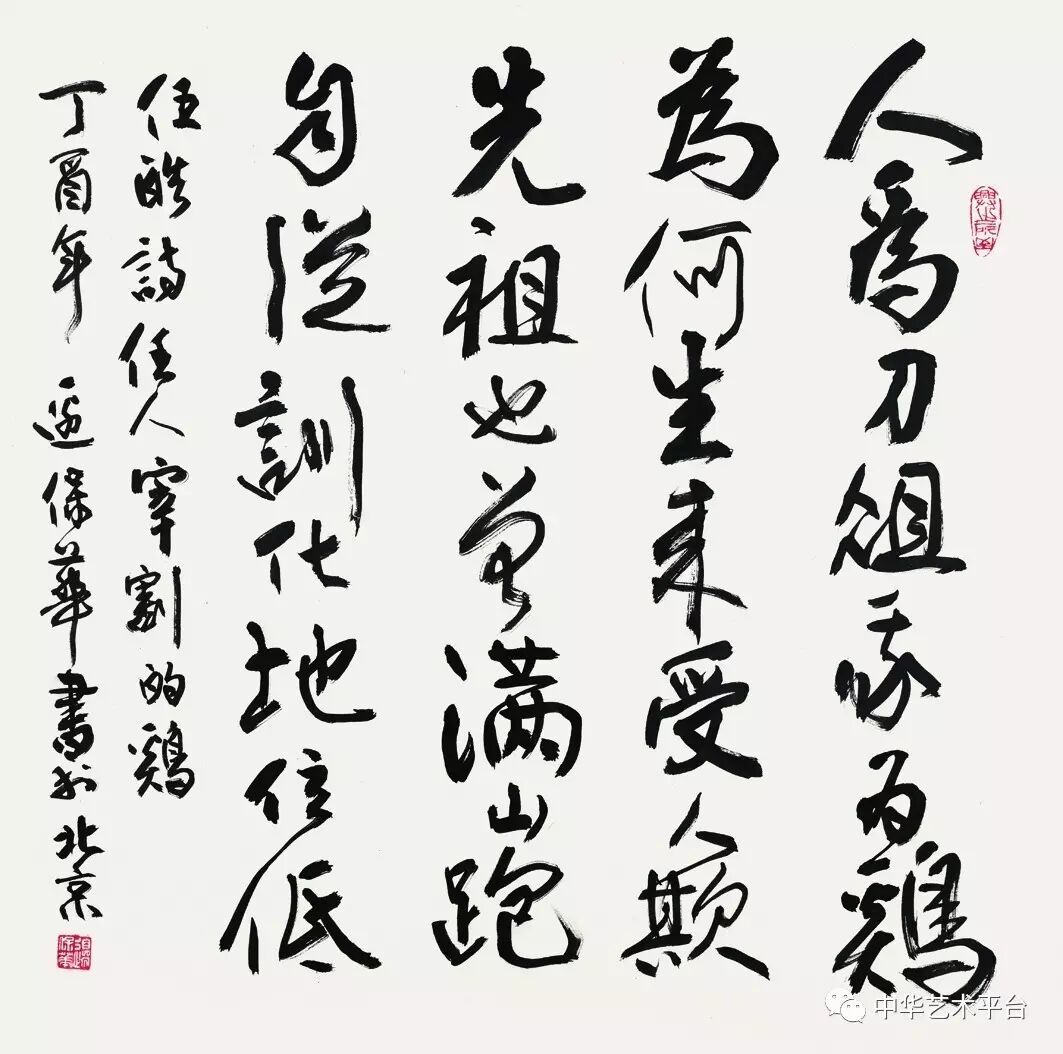 人為刀俎我為鷄
為何生来受人欺
先祖也曾满山跑
自從訓化地位低
任皓詩任人宰割的鷄
丁酉年 邊保華書於北京
中华艺术平台